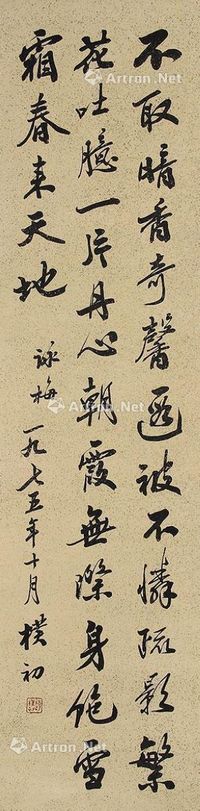 不取暗香奇馨遐被不憐疏影繁
花吐臆一片丹心朝霞無際身純雪
霜春来天地
詠梅 一九七五年十月 樸初
Artron.Net
Artron.Net
Artron.Net
Artron.Net